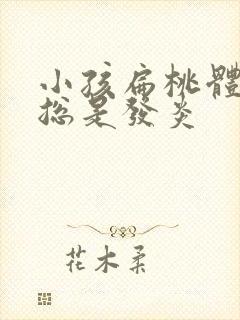 小孩扁桃體
總是發炎
花木柔